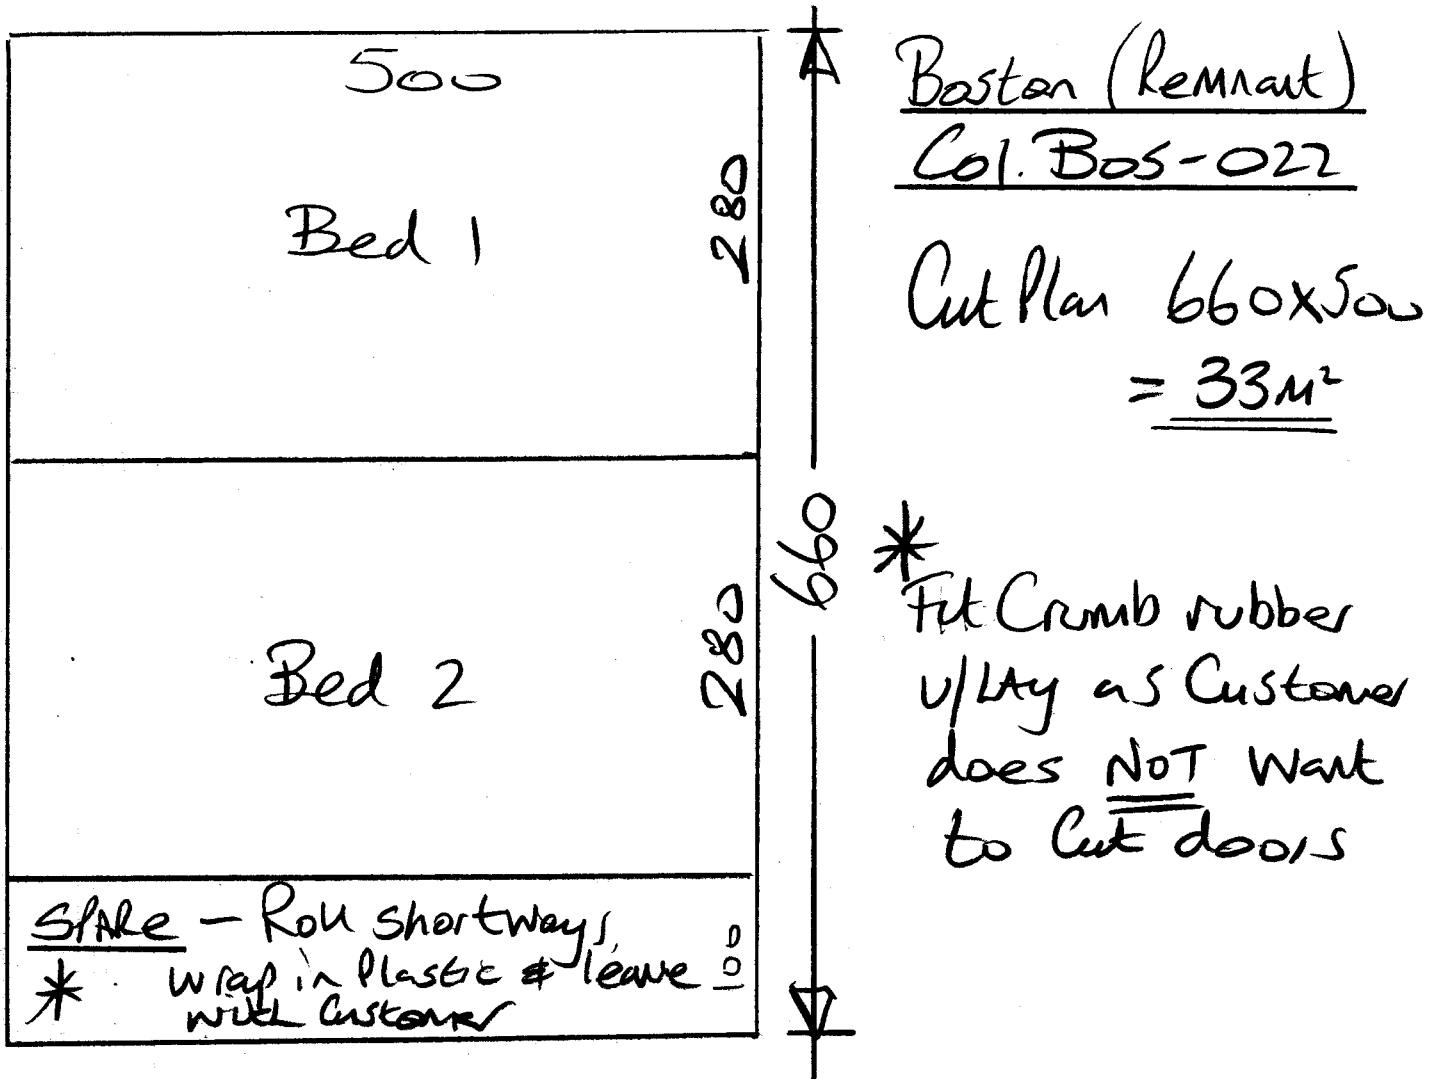 500
Bed 1
280
Bed 2
280
SPARE - Roll shortways,
* wrap in Plastic & leave
with Customer
100
660
Boston (Remnant)
Col. Bos-022
Cut Plan 660x500
= 33M²
*
Fit Crumb rubber
U/LAY as Customer
does NOT want
to Cut doors